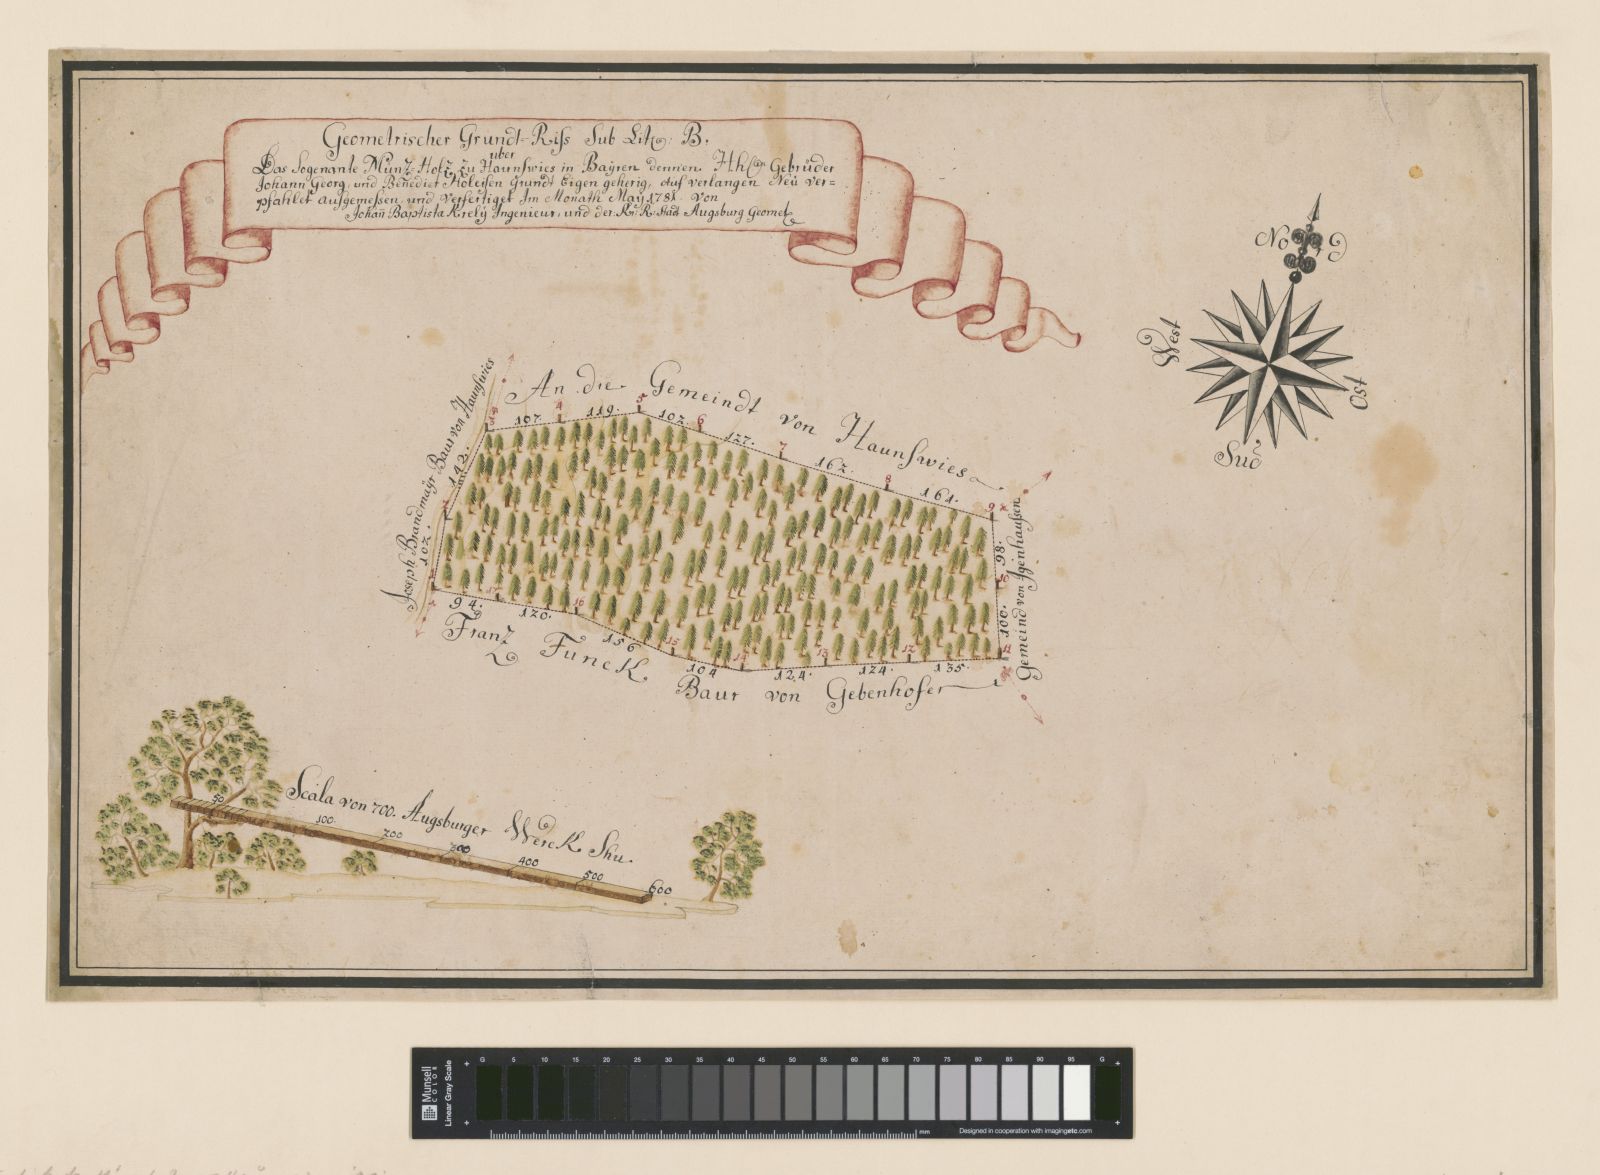 Geometrischer Grundt-Riss Sub Lit: B.
über
Das Sogenante Müntz-Holtz zu Haunswies in Bayren dennen Gebrüder
Johann Georg, und Benedict Grundt Eigen geherig, Auf verlangen Neü ver=
pfahlet aufgemessen und verfertiget Im Monath May von
Johañ Baptista Krelÿ Ingenieur, und der K: R: Stadt Augsburg Geomet
Nord
West
Ost
Süd
An die Gemeindt von Haunswies
Joseph Brandmäyr Baur von Haunswies
Gemeind von Igenhaussen
Franz Funck
Baur von Gebenhofer
3 4 5 6 7 8 9
107. 119. 102. 127. 162. 161.
142.
102.
98.
10
100.
11
1 17 16 15 14 13 12
94. 120. 156 104 124. 124. 135.
Scala von 700. Augsburger Werck Shu.
50 100 200 300 400 500 600
Munsell
COLOR
Linear Gray Scale
G 5 10 15 20 25 30 35 40 45 50 55 60 65 70 75 80 85 90 95 G
mm
Designed in cooperation with imagingetc.com